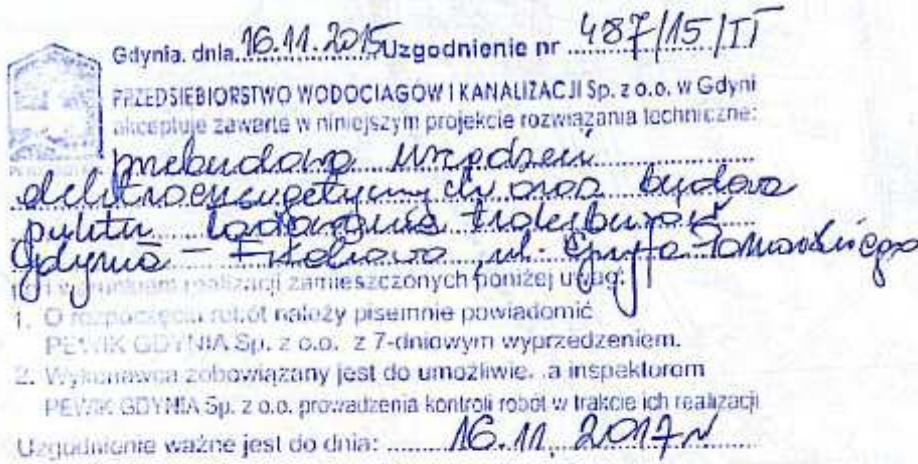 Gdynia, dnia 16.11.2015 Uzgodnienie nr 487/15/II
PRZEDSIĘBIORSTWO WODOCIĄGÓW I KANALIZACJI Sp. z o.o. w Gdyni
akceptuje zawarte w niniejszym projekcie rozwiązania techniczne:
przebudowa urządzeń
elektroenergetycznych oraz budowa
punktu ładowania trolejbusów
Gdynia – Fikakowo, ul. Gryfa Pomorskiego
warunkiem realizacji zamieszczonych poniżej uwag:
1. O rozpoczęciu robót należy pisemnie powiadomić
PEWIK GDYNIA Sp. z o.o. z 7-dniowym wyprzedzeniem.
2. Wykonawca zobowiązany jest do umożliwie..a inspektorom
PEWIK GDYNIA Sp. z o.o. prowadzenia kontroli robót w trakcie ich realizacji
Uzgodnienie ważne jest do dnia: 16.11.2017r